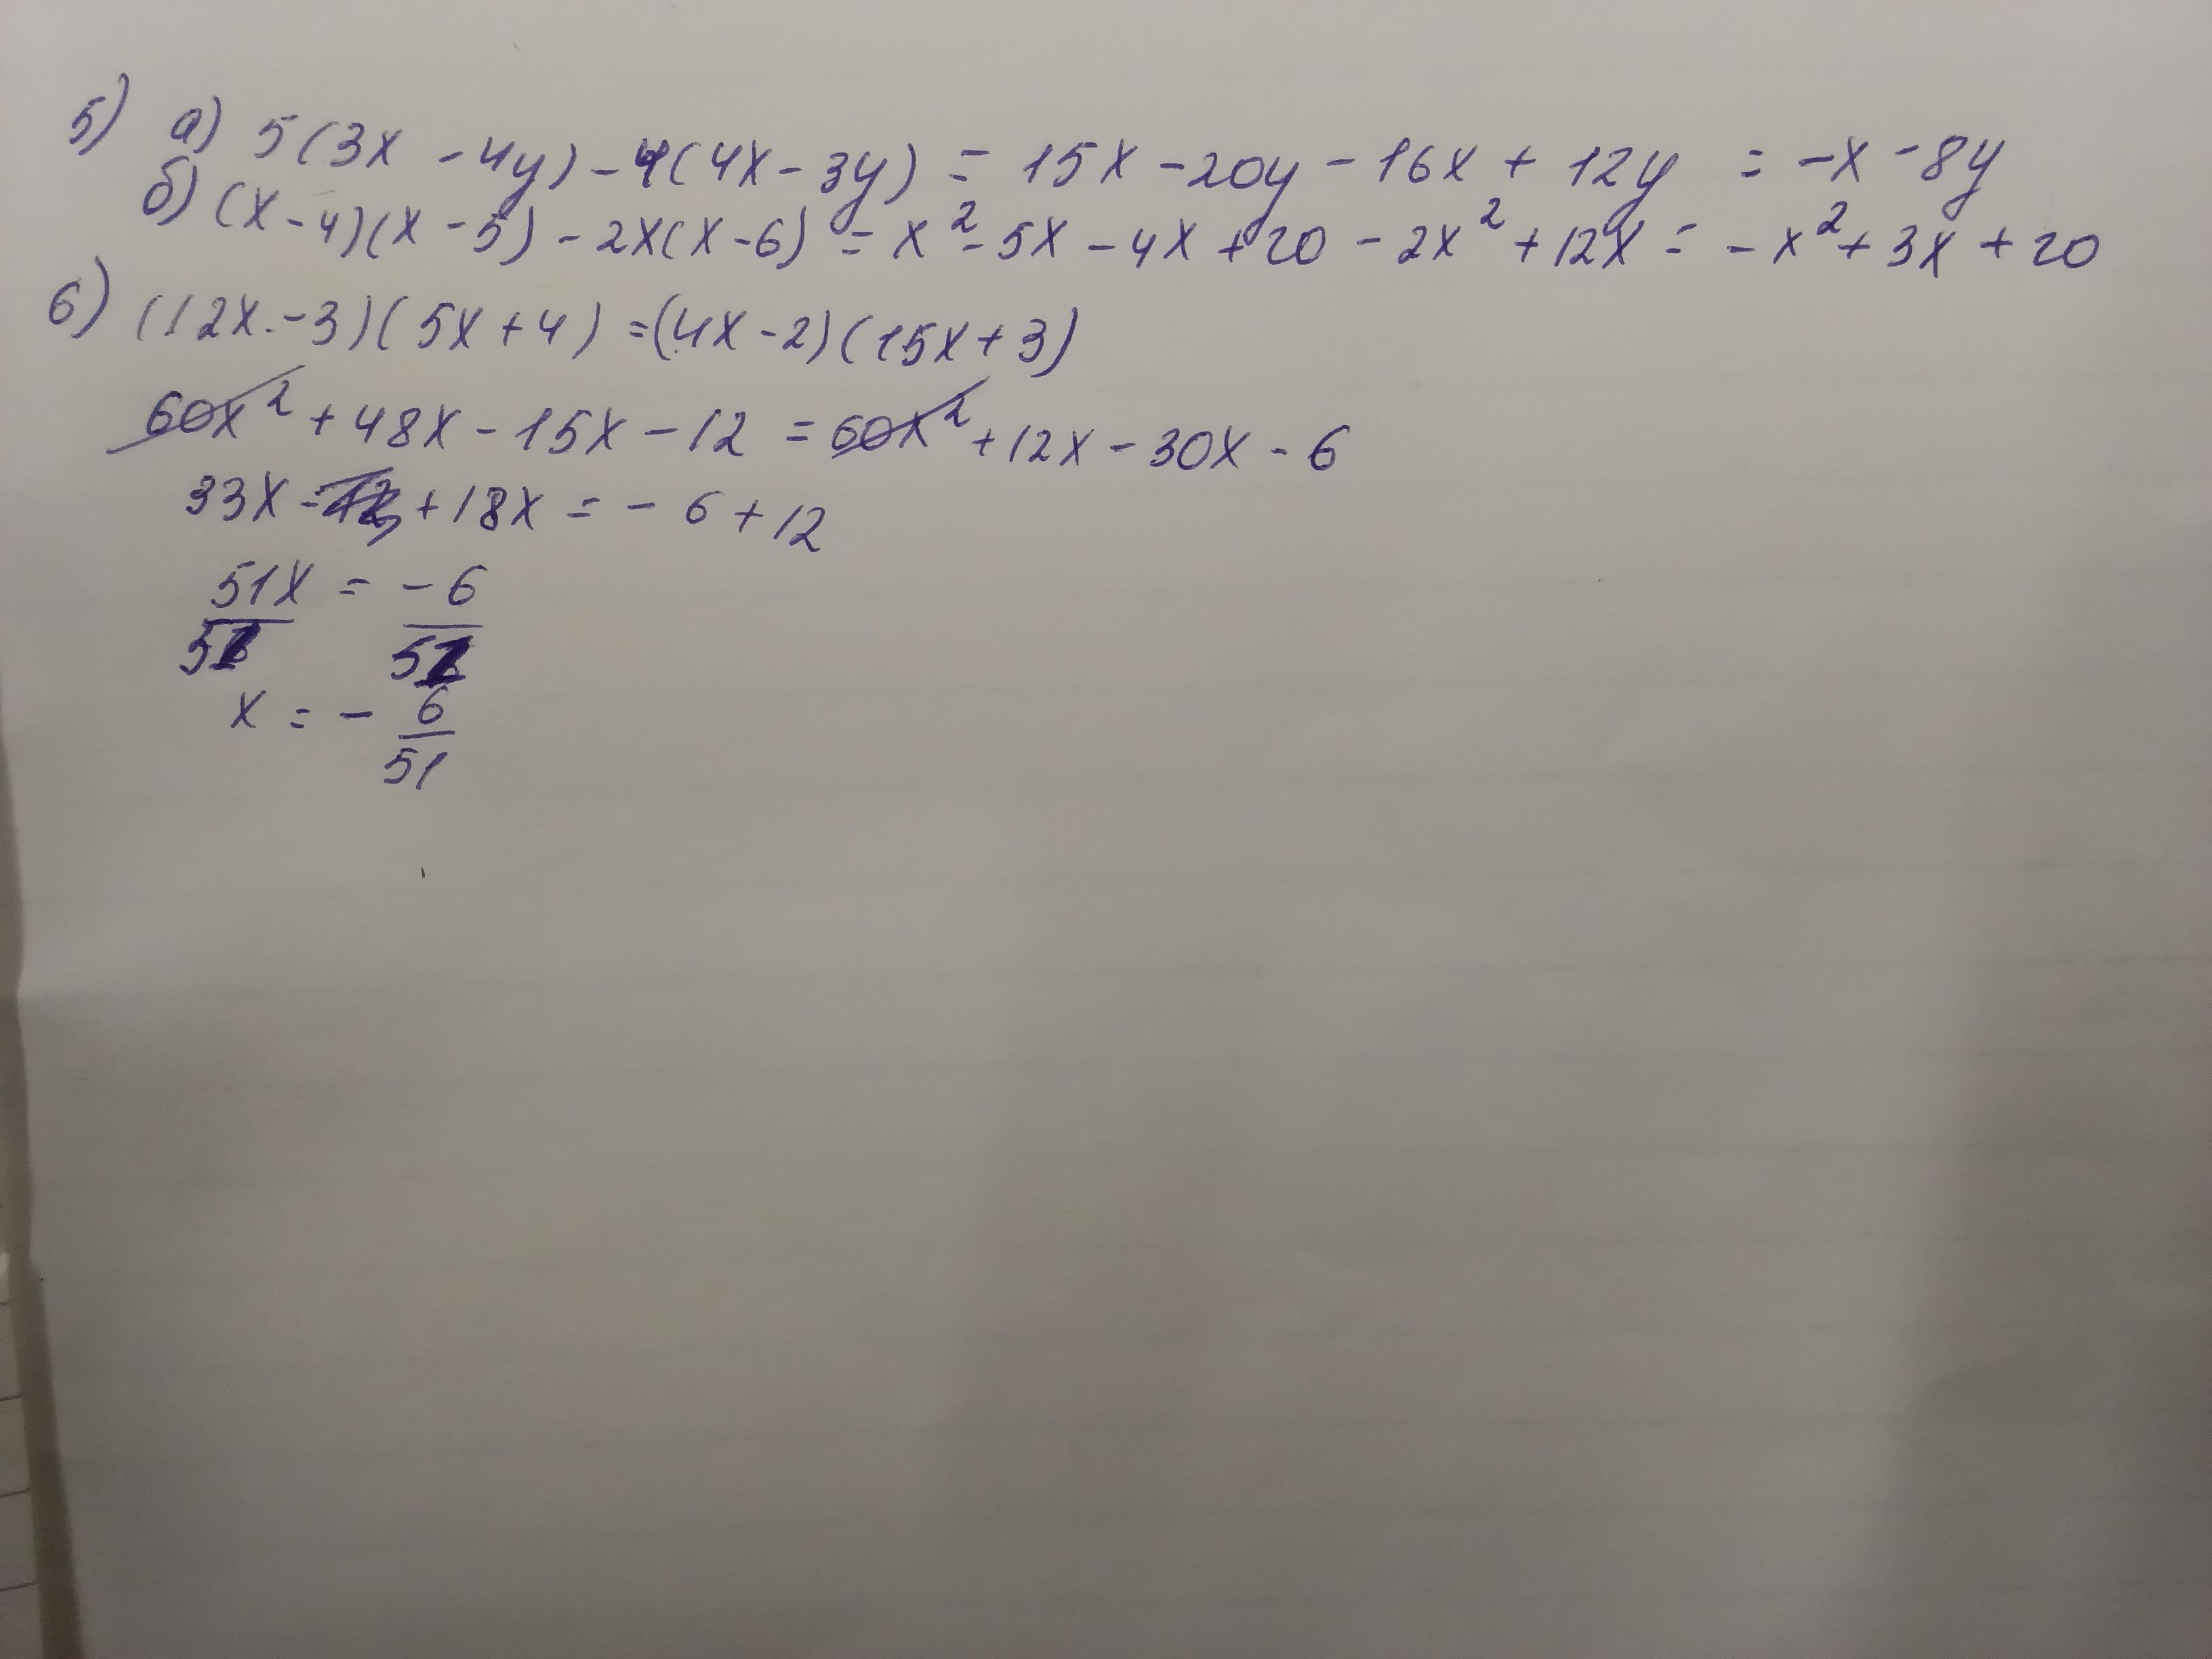 5) а) 5(3x - 4y) - 4(4x - 3y) = 15x - 20y - 16x + 12y = -x - 8y
б) (x - 4)(x - 5) - 2x(x - 6) = x² - 5x - 4x + 20 - 2x² + 12x = - x² + 3x + 20
6) (12x - 3)(5x + 4) = (4x - 2)(15x + 3)
60x² + 48x - 15x - 12 = 60x² + 12x - 30x - 6
33x + 18x = - 6 + 12
51x = - 6
51 51
x = - 6
51